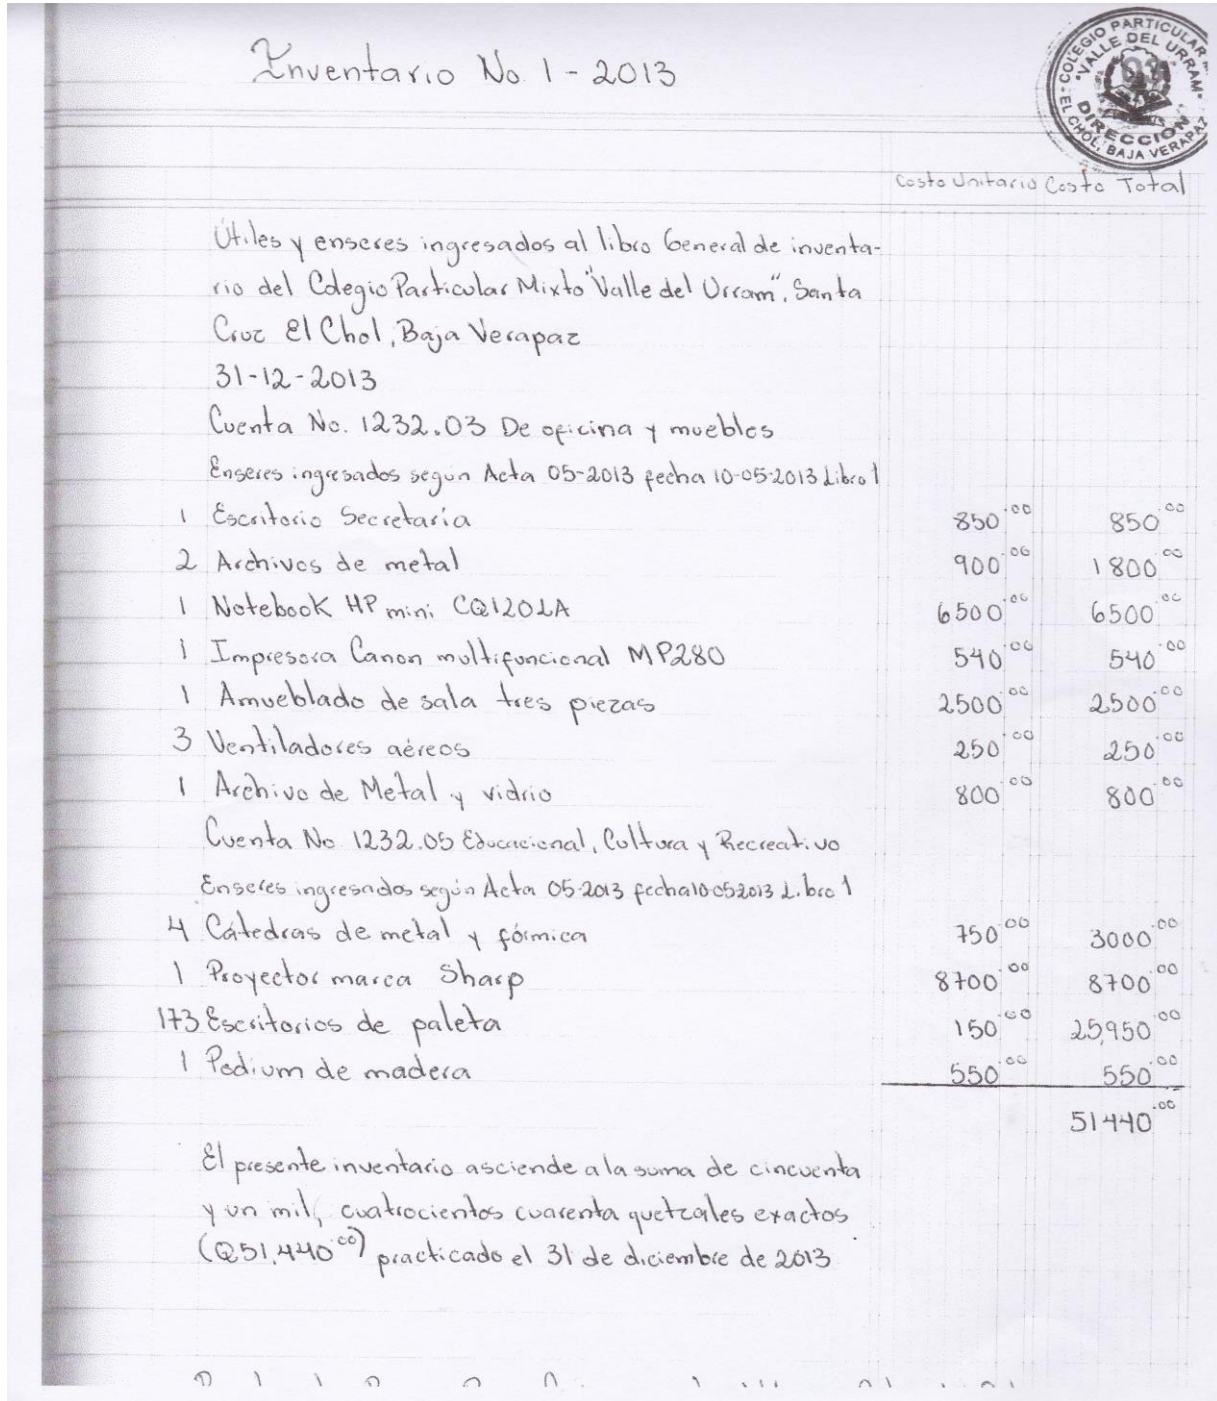 Inventario No. 1 - 2013
COLEGIO PARTICULAR
"VALLE DEL URRAM"
DIRECCION
EL CHOL, BAJA VERAPAZ
Costo Unitario Costo Total
Útiles y enseres ingresados al libro General de inventa-
rio del Colegio Particular Mixto "Valle del Urram", Santa
Cruz El Chol, Baja Verapaz
31-12-2013
Cuenta No. 1232.03 De oficina y muebles
Enseres ingresados según Acta 05-2013 fecha 10-05-2013 Libro 1
1 Escritorio Secretaría 850.00 850.00
2 Archivos de metal 900.00 1800.00
1 Notebook HP mini CQ1201A 6500.00 6500.00
1 Impresora Canon multifuncional MP280 540.00 540.00
1 Amueblado de sala tres piezas 2500.00 2500.00
3 Ventiladores aéreos 250.00 250.00
1 Archivo de Metal y vidrio 800.00 800.00
Cuenta No 1232.05 Educacional, Cultura y Recreativo
Enseres ingresados según Acta 05-2013 fecha 10 05 2013 Libro 1
4 Cátedras de metal y fórmica 750.00 3000.00
1 Proyector marca Sharp 8700.00 8700.00
173 Escritorios de paleta 150.00 25,950.00
1 Podium de madera 550.00 550.00
51440.00
El presente inventario asciende a la suma de cincuenta
y un mil, cuatrocientos cuarenta quetzales exactos
(Q51,440.00) practicado el 31 de diciembre de 2013